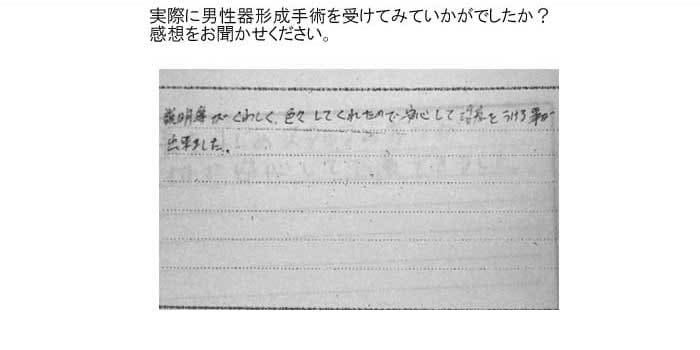 実際に男性器形成手術を受けてみていかがでしたか？
感想をお聞かせください。
説明等がくわしく、色々してくれたので安心して診察をうける事が
出来ました。